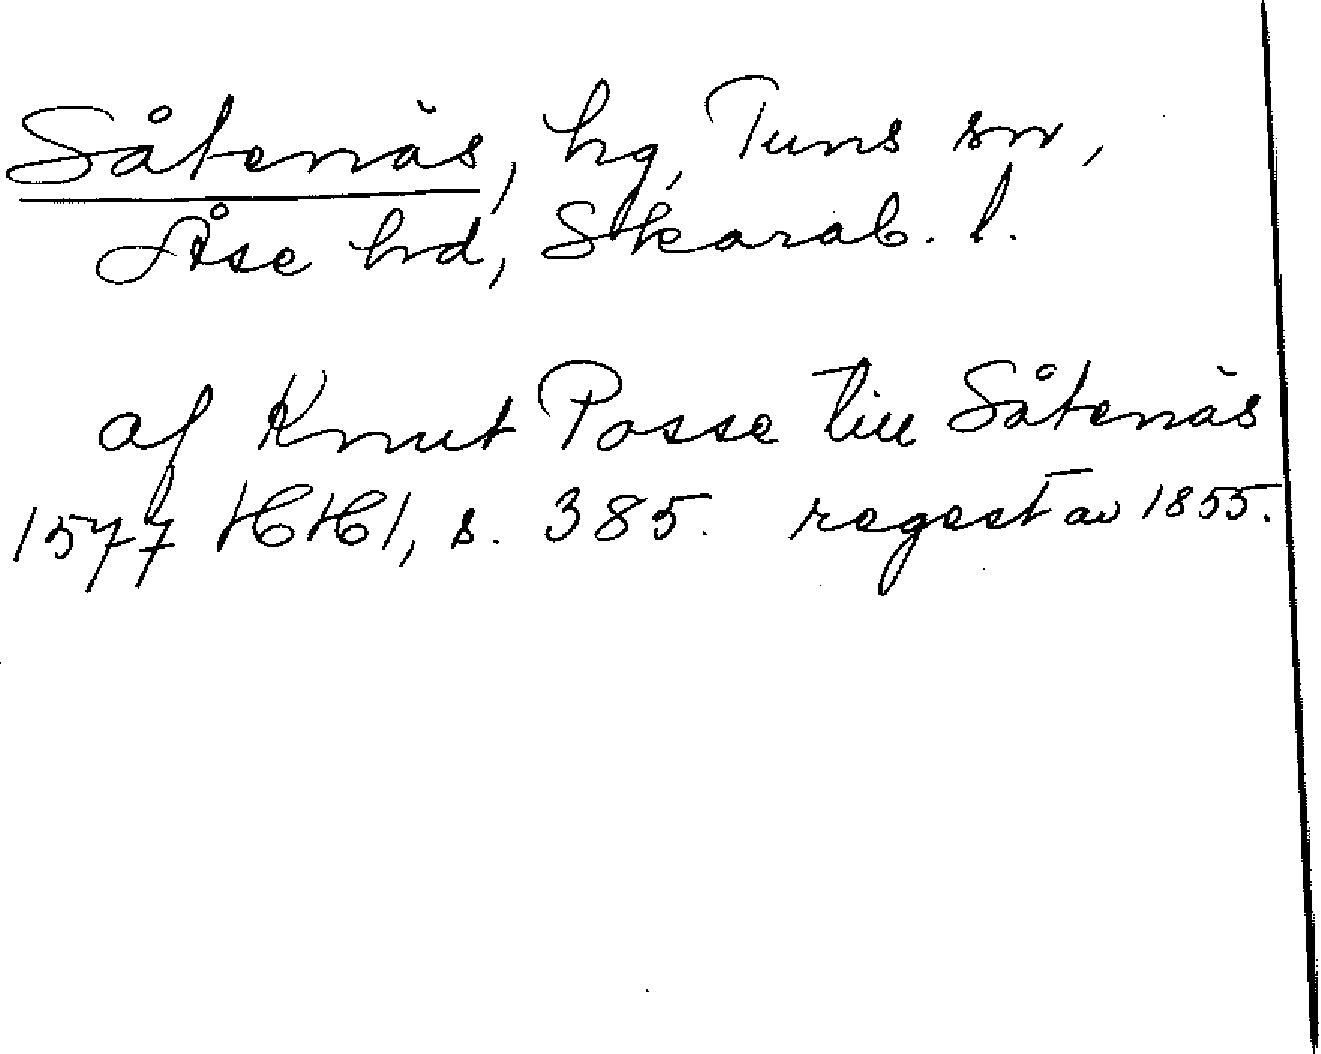 Såtenäs, hg, Tuns sn,
Åse hd, Skarab. l.
af Knut Posse till Såtenäs
1577 HH1, s. 385. regest av 1855.